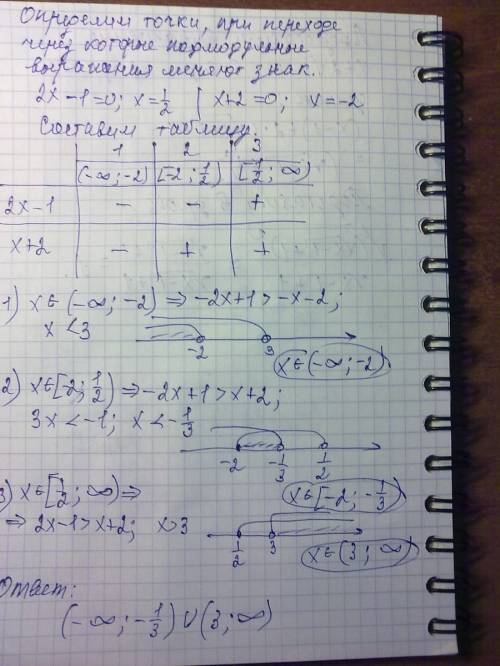 Определим точки, при переходе
через которые подмодульные
выражения меняют знак.
2x-1=0; x=1/2 | x+2=0; x=-2
Составим таблицу.
1 2 3
(-∞;-2) [-2;1/2) [1/2;∞)
2x-1 - - +
x+2 - + +
1) x∈(-∞;-2) ⇒ -2x+1>-x-2;
x<3
-2 3
x∈(-∞;-2)
2) x∈[-2;1/2) ⇒ -2x+1>x+2;
3x<-1; x<-1/3
-2 -1/3 1/2
x∈[-2;-1/3)
3) x∈[1/2;∞) ⇒
⇒ 2x-1>x+2; x>3
1/2 3
x∈(3;∞)
Ответ:
(-∞;-1/3)∪(3;∞)